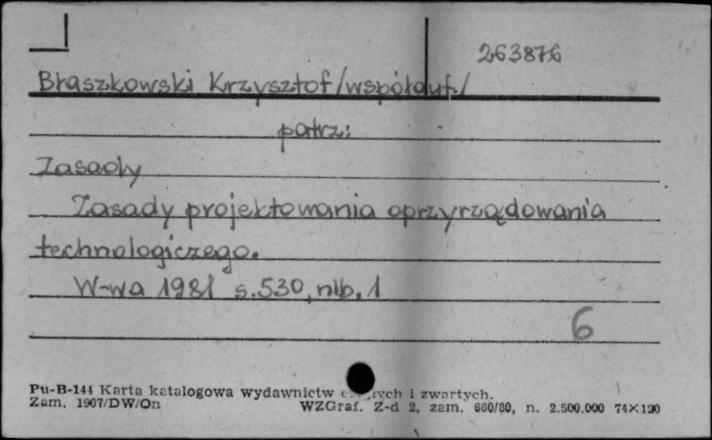 263876
Błaszkowski Krzysztof/współaut./
patrz:
Zasady
Zasady projektowania oprzyrządowania
technologicznego.
W-wa 1981 s.530, nlb. 1
6
Pu-B-144 Karta katalogowa wydawnictw i zwartych.
Zam. 1907/DW/On WZGraf. Z-d 2, zam. 660/80, n. 2.500.000 74×120